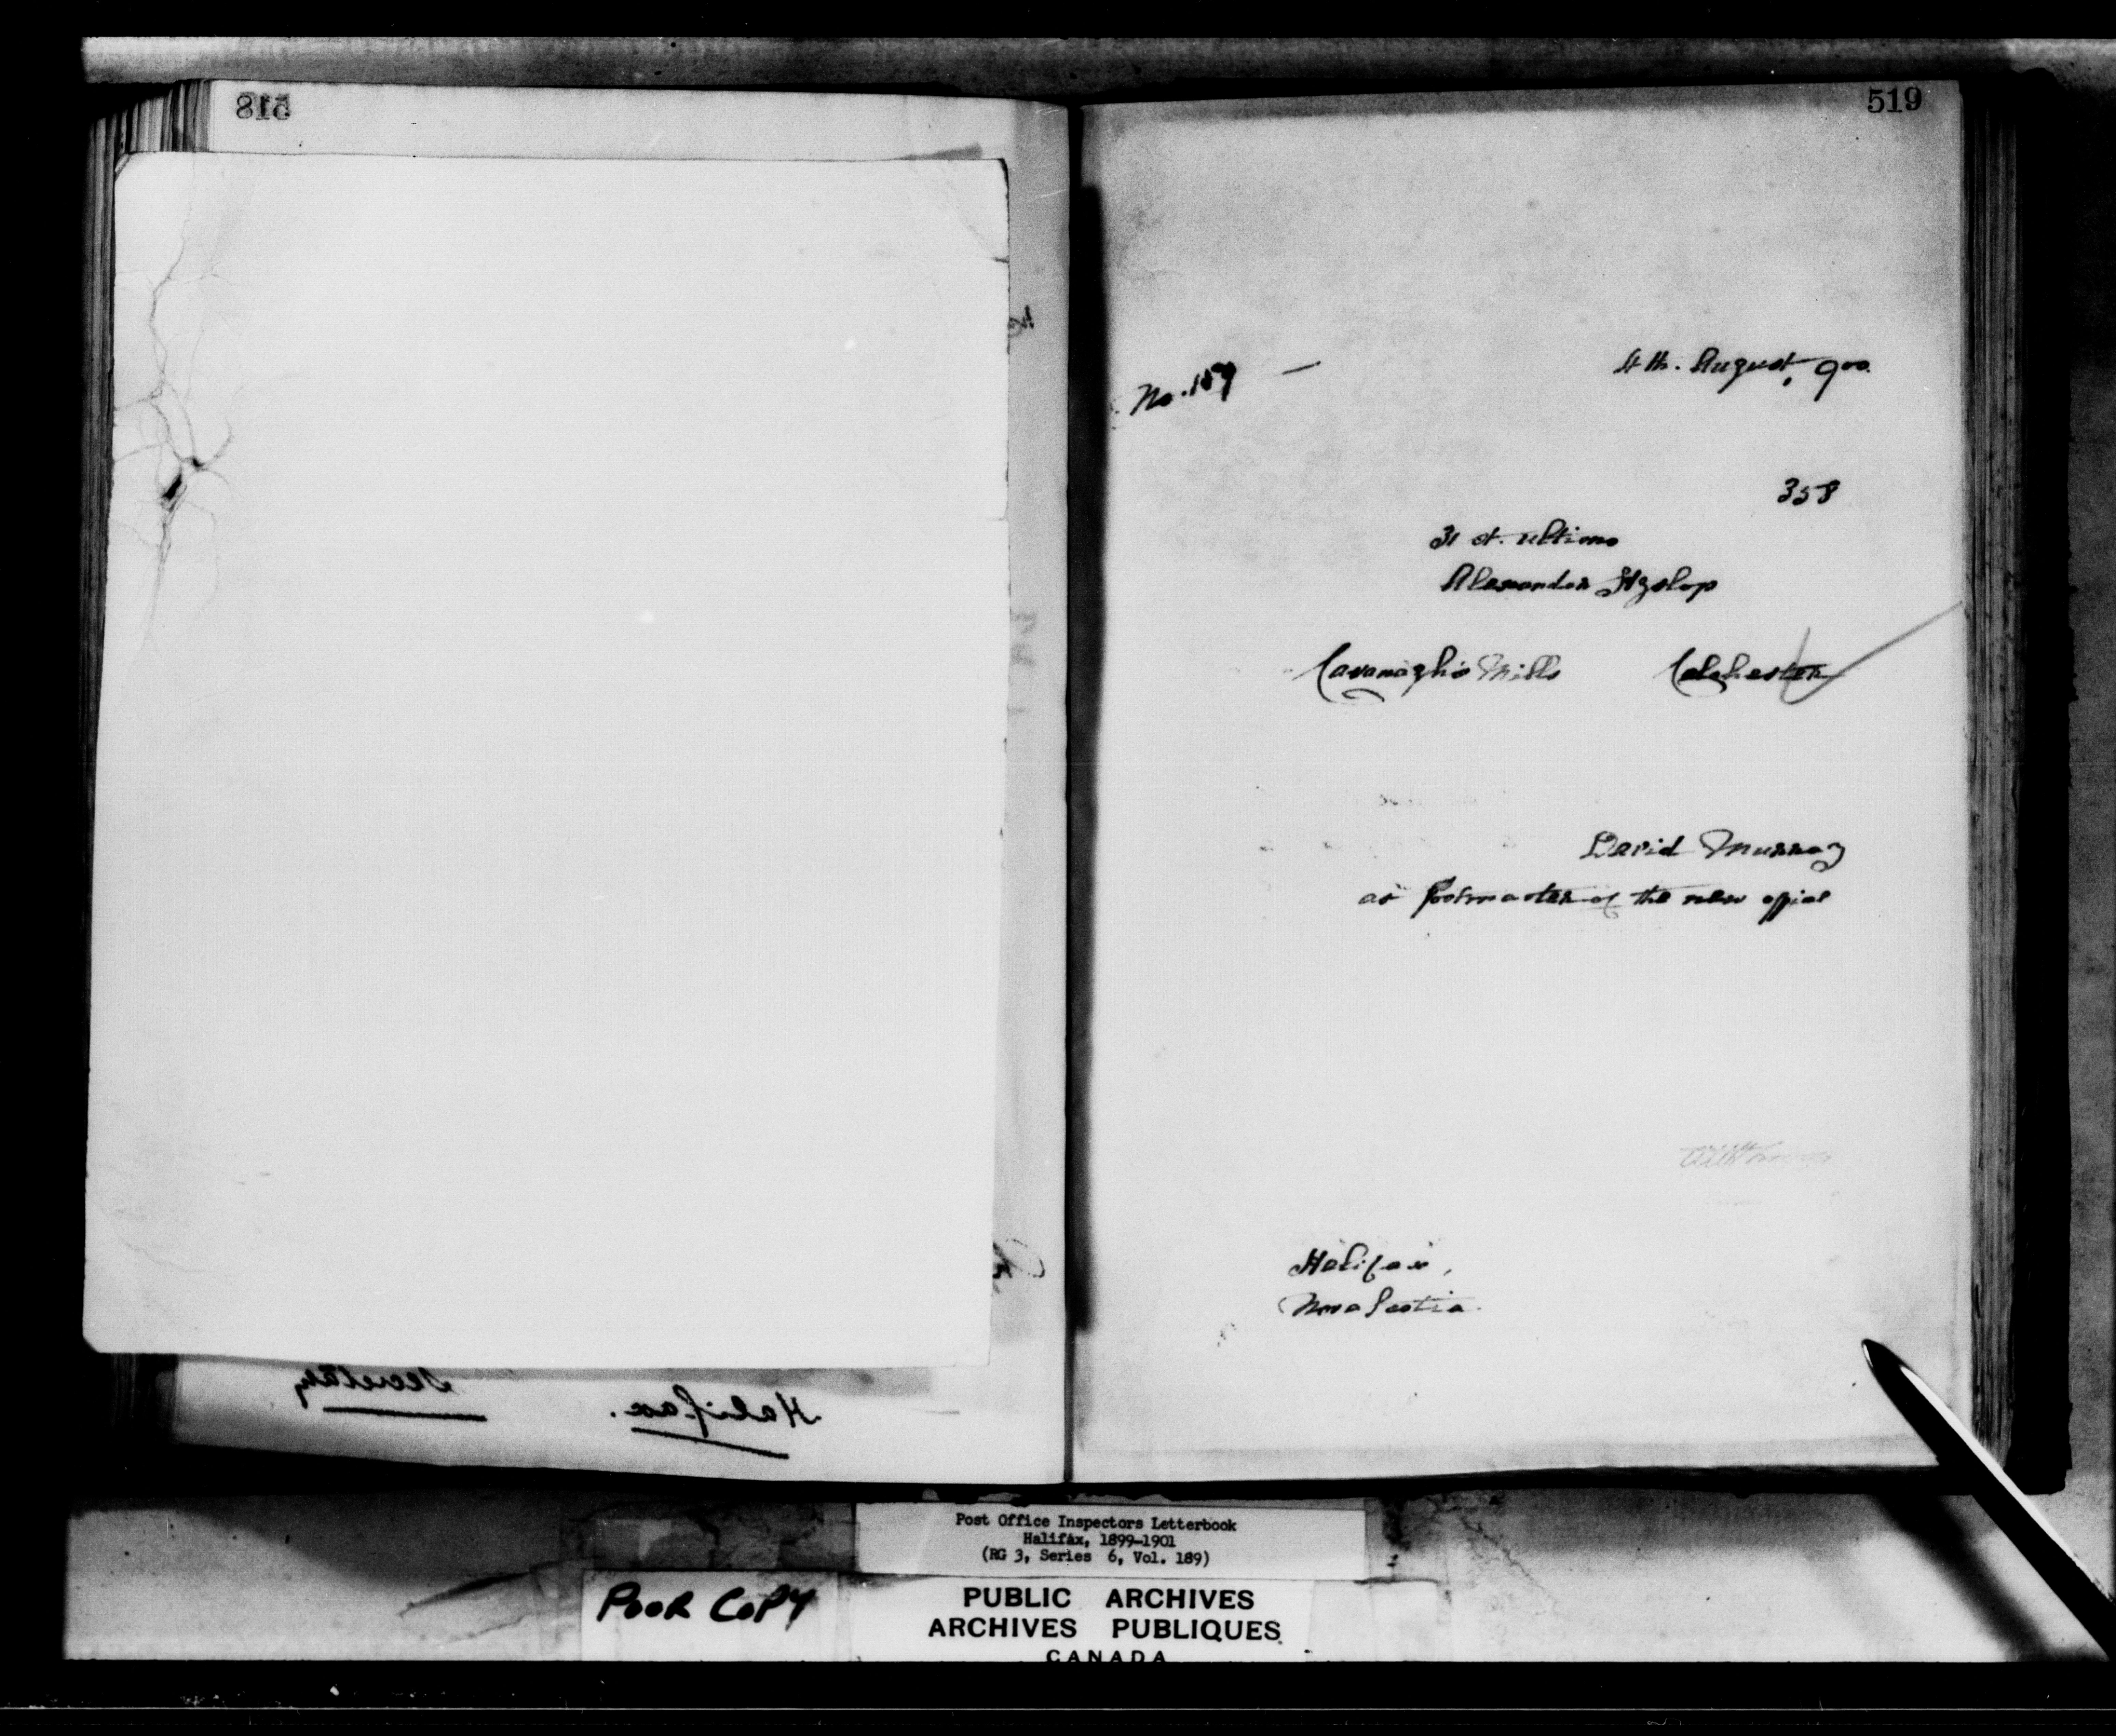 518
Secretary
Halifax.
519
No. 159 —
4 th. August, 900.
358
31 st. ultimo
Alexander Hyslop
Cavanagh's Mills Colchester
David Murray
as Postmaster of the new office
Halifax,
Nova Scotia.
Post Office Inspectors Letterbook
Halifax, 1899-1901
(RG 3, Series 6, Vol. 189)
POOR COPY
PUBLIC ARCHIVES
ARCHIVES PUBLIQUES
CANADA